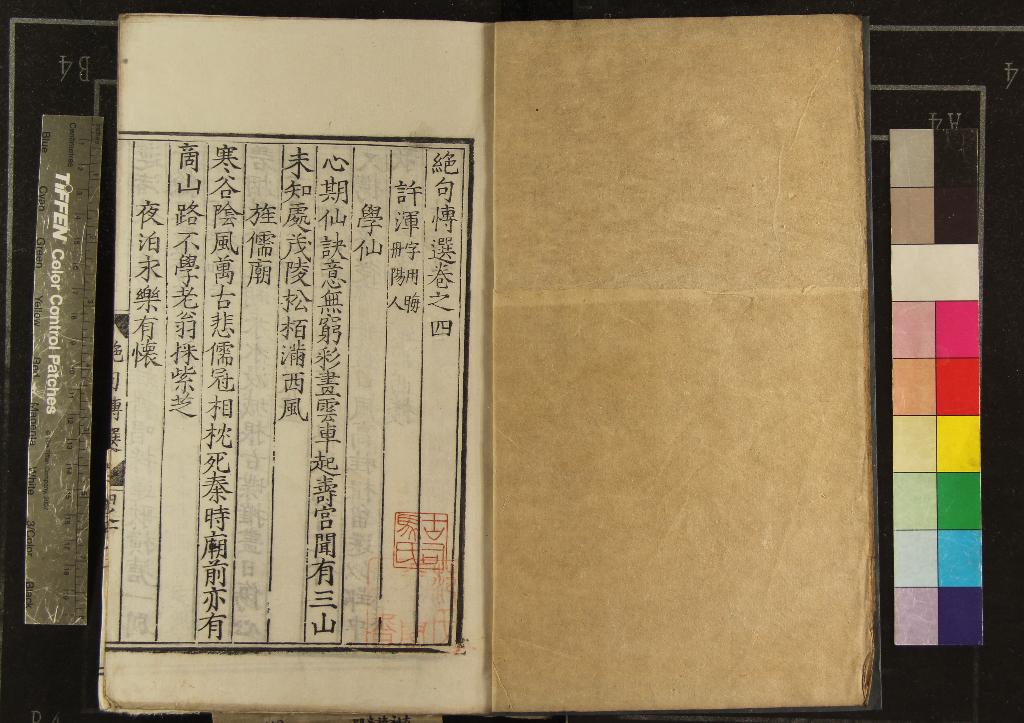 絶句博選卷之四
許渾字用晦
丹陽人
學仙
心期仙訣意無窮彩畫雲車起壽宮聞有三山
未知處茂陵松栢滿西風
旌儒廟
寒谷陰風萬古悲儒冠相枕死秦時廟前亦有
商山路不學老翁採紫芝
夜泊永樂有懷
絶句博選
古司
馬氏
TIFFEN Color Control Patches
Centimetres
Blue
Cyan
Green
Yellow
Red
Magenta
White
3/Color
Black
B4
A4
4